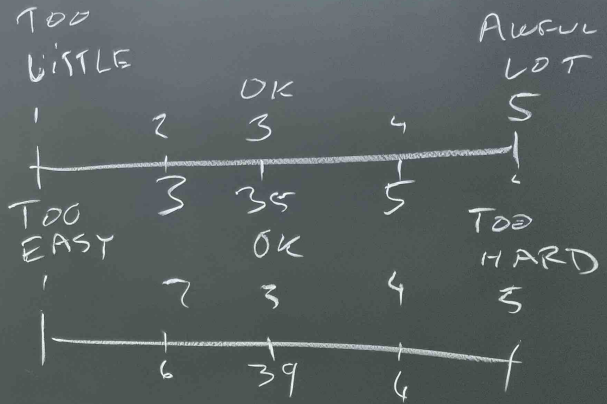 TOO
LITTLE
AWFUL
LOT
OK
1 2 3 4 5
3 35 5
TOO
EASY
OK
TOO
HARD
1 2 3 4 5
6 39 4